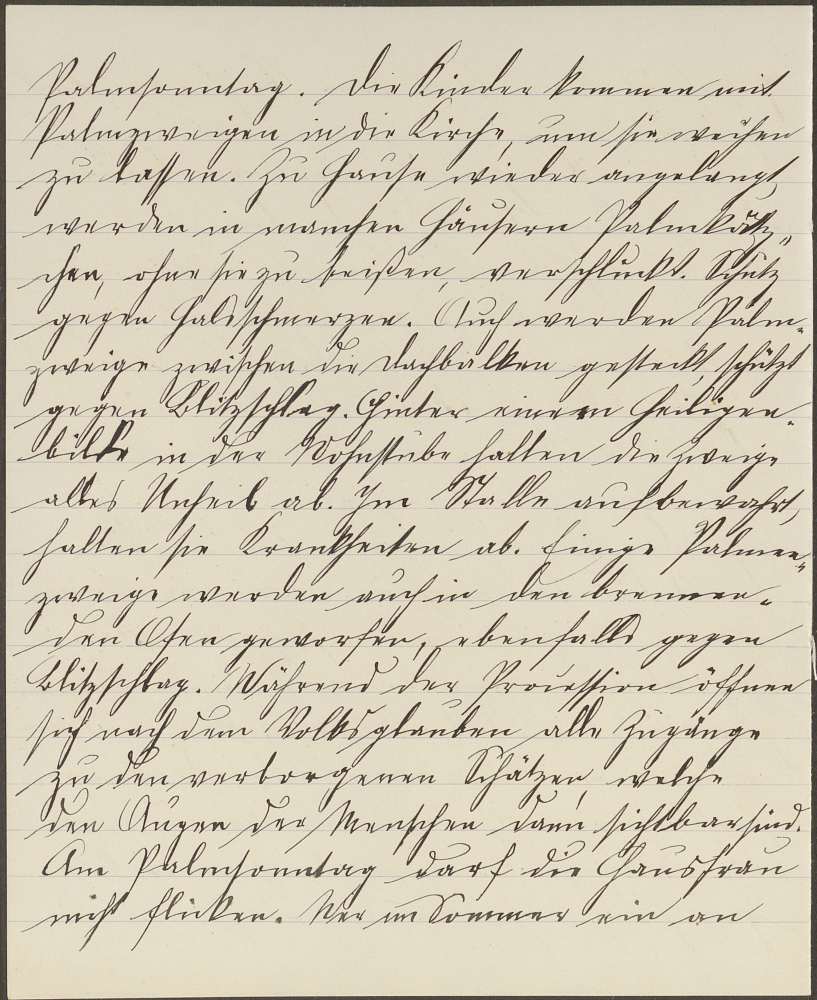 Palmsonntag. Die Kinder kommen mit
Palmzweigen in die Kirche, um sie weihen
zu lassen. Zu Hause wieder angelangt,
werden in manchen Häusern Palmkätz„
chen, ohne sie zu beißen, verschluckt. Schutz
gegen Halsschmerzen. Auch werden Palm„
zweige zwischen die Dachbalken gesteckt, schützt
gegen Blitzschlag. Hinter einem Heiligen„
bilde in der Wohnstube halten die Zweige
alles Unheil ab. Im Stalle aufbewahrt,
halten sie Krankheiten ab. Einige Palmen„
zweige werden auch in den brennen„
den Ofen geworfen, ebenfalls gegen
Blitzschlag. Während der Procession öffnen
sich nach dem Volksglauben alle Zugänge
zu den verborgenen Schätzen, welche
den Augen der Menschen dann sichtbar sind.
Am Palmsonntag darf die Hausfrau
nicht flicken. Wer im Sommer ein an